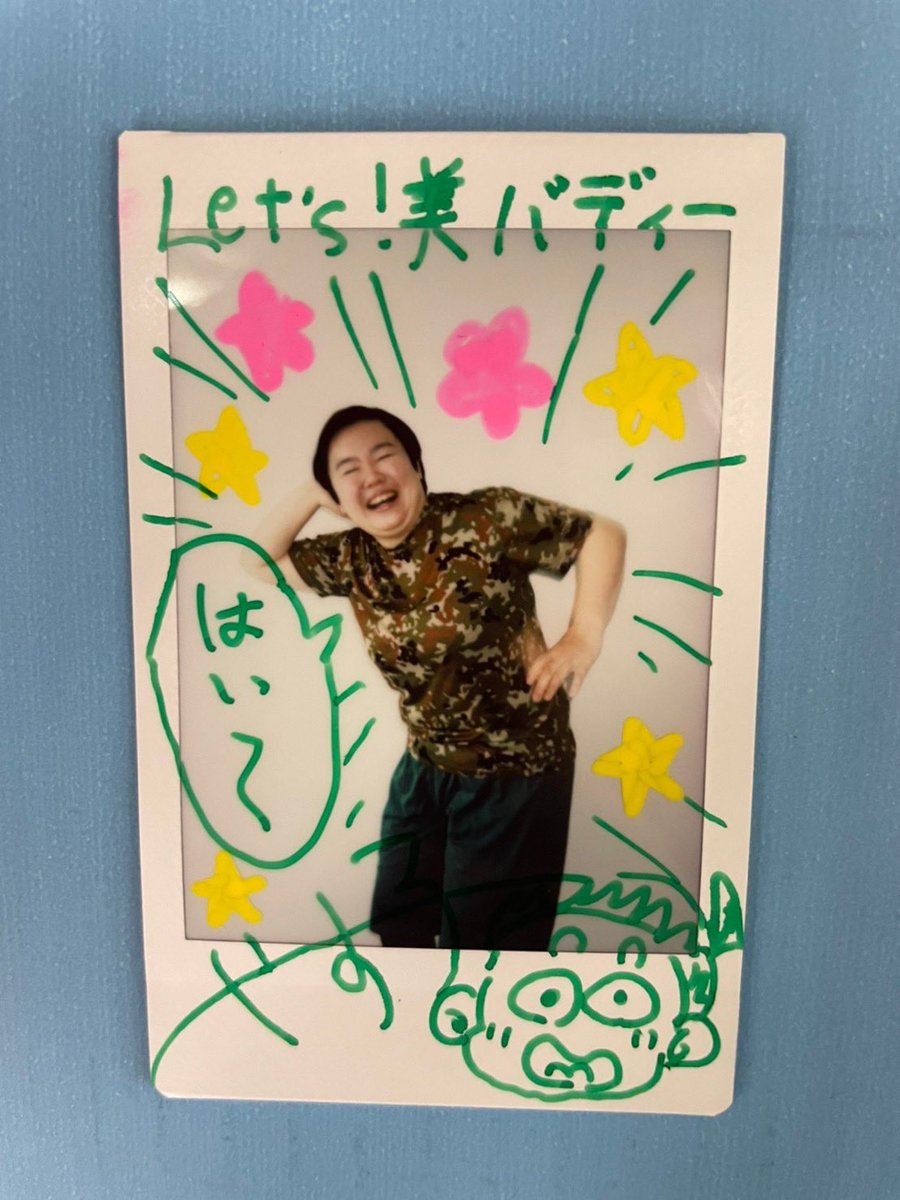 Let's!美バディー
はいて
やす